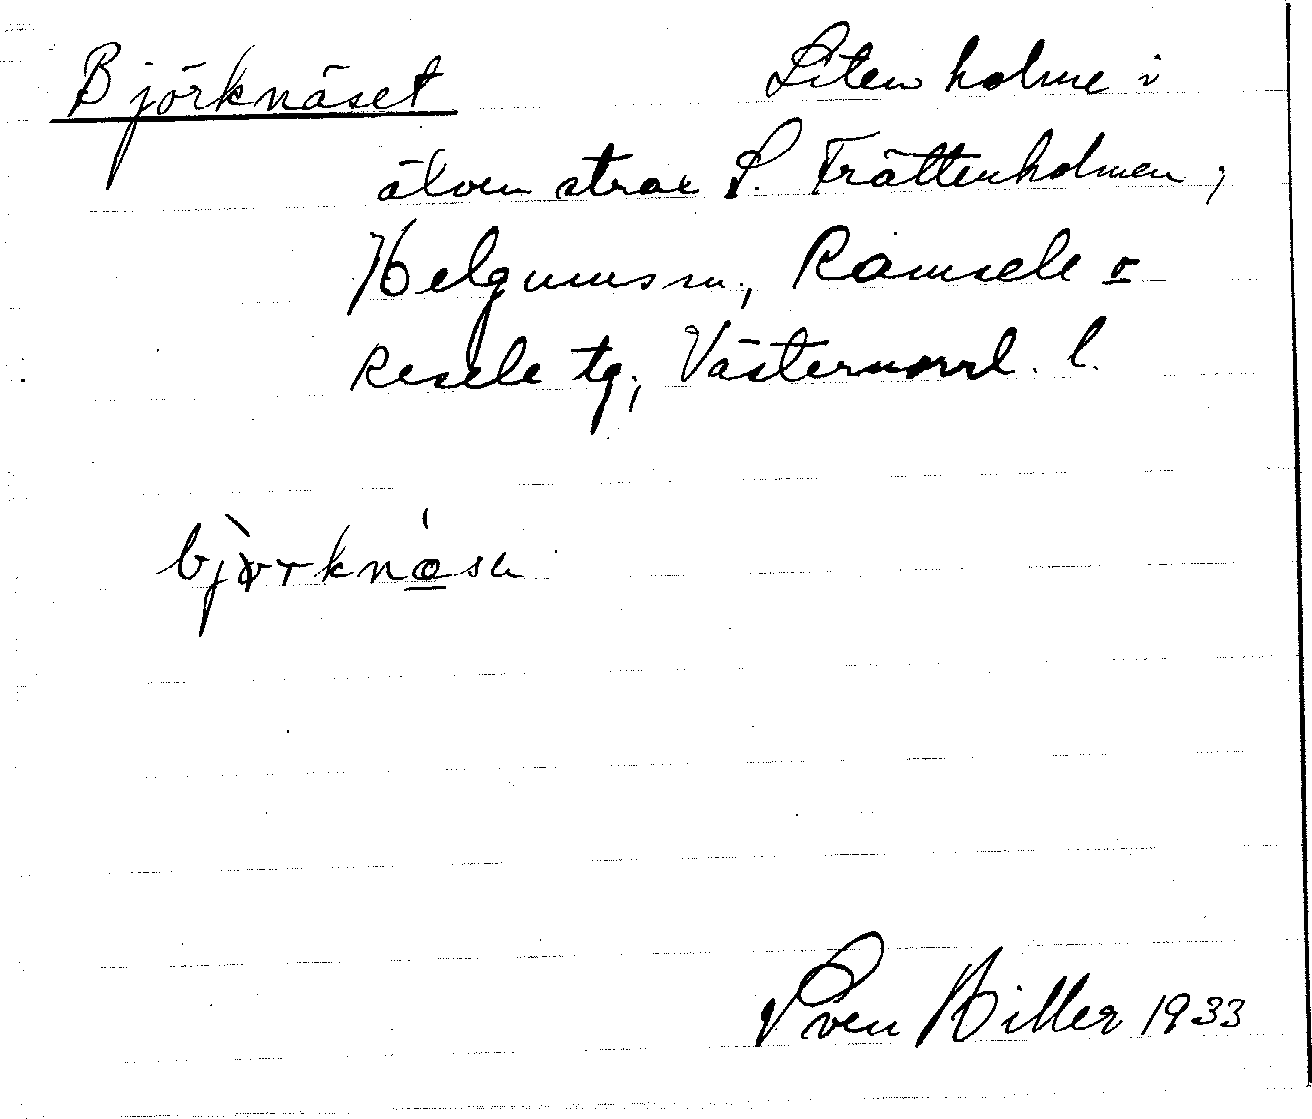 Björknäset Liten holme i
älven strax S. Trättenholmen,
Helgums sn, Ramsele o
Resele tg, Västernorrl. l.
Sven Hiller 1933